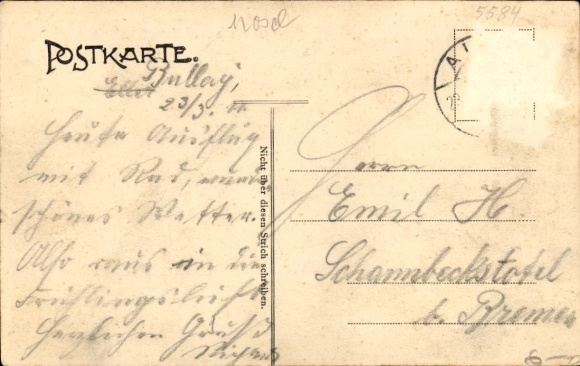 Mosel
5584
POSTKARTE.
Eller Bullay,
23/3. 11.
Heute Ausflug
mit Rad,
schönes Wetter.
Also raus in die
Frühlingsluft
herzlichen Gruß
Nicht über diesen Strich schreiben.
Herrn
Emil H.
Schannbeckstotel
b. Bremen